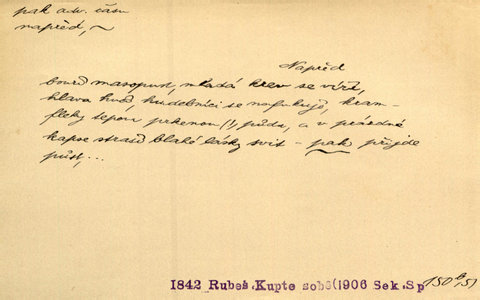 pak adv. času
napřed,
Napřed
bouří masopust, mladá krev se víří,
hlava hučí, hudebníci se nafukují, kram-
fleky tepou prkennou (!) půdu, a v prázdné
kapse straší blahé lásky svit – pak přijde
půst,...
1842 Rubeš Kupte sobě(1906 Sek.Sp
150 b,5)